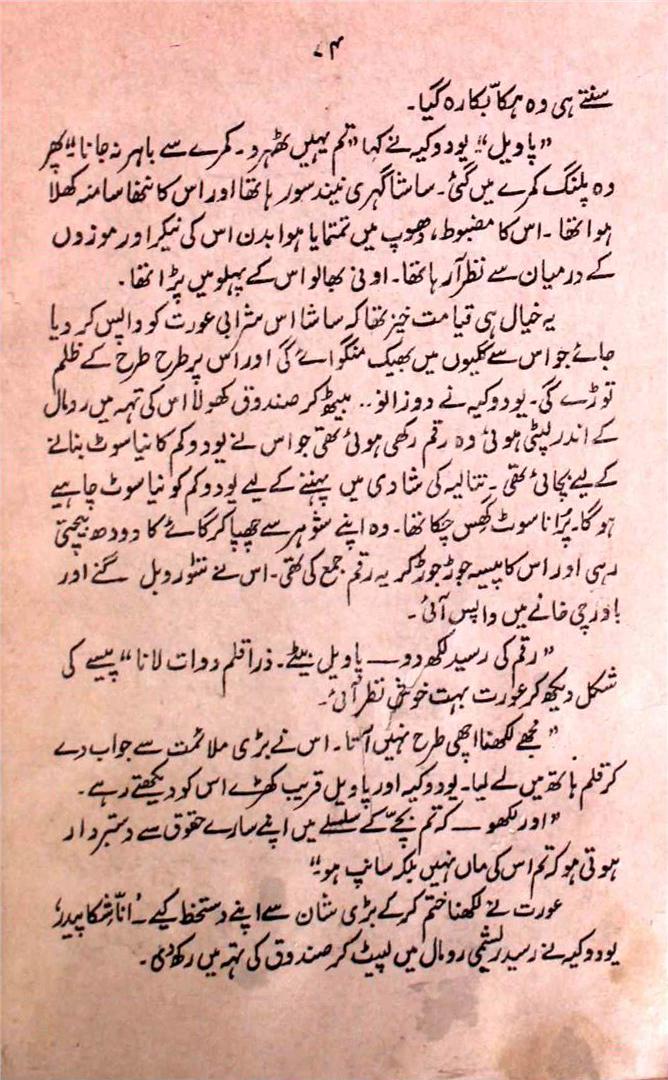 ۷۴
سنتے ہی وہ ہکّا بکّا رہ گیا۔
”پاویل“ یودوکیہ نے کہا ”تم یہیں ٹھہرو۔ کمرے سے باہر نہ جانا“ پھر
وہ پلنگ کمرے میں گئی۔ ساشا گہری نیند سو رہا تھا اور اس کا ننھا سا منہ کھلا
ہوا تھا۔ اس کا مضبوط، دھوپ میں تمتمایا ہوا بدن اس کی نیکر اور موزوں
کے درمیان سے نظر آ رہا تھا۔ اونی بھالو اس کے پہلو میں پڑا تھا۔
یہ خیال ہی قیامت خیز تھا کہ ساشا اس شرابی عورت کو واپس کر دیا
جائے جو اس سے گلیوں میں بھیک منگوائے گی اور اس پر طرح طرح کے ظلم
توڑے گی۔ یودوکیہ نے دو زانو.. بیٹھ کر صندوق کھولا اس کی تہہ میں رومال
کے اندر لپٹی ہوئی وہ رقم رکھی ہوئی تھی جو اس نے یودوکم کا نیا سوٹ بنانے
کے لیے بچائی تھی۔ نتالیہ کی شادی میں پہننے کے لیے یودوکم کو نیا سوٹ چاہیے
ہوگا۔ پُرانا سوٹ گھس چکا تھا۔ وہ اپنے شوہر سے چھپا کر گائے کا دودھ بیچتی
رہی اور اس کا پیسہ جوڑ جوڑ کر یہ رقم جمع کی تھی۔ اس نے ستّو روبل گنے اور
باورچی خانے میں واپس آئی۔
”رقم کی رسید لکھ دو — پاویل بیٹے۔ ذرا قلم دوات لانا“ پیسے کی
شکل دیکھ کر عورت بہت خوش نظر آئی۔
”مجھے لکھنا اچھی طرح نہیں آتا۔ اس نے بڑی ملائمت سے جواب دے
کر قلم ہاتھ میں لے لیا۔ یودوکیہ اور پاویل قریب کھڑے اس کو دیکھتے رہے۔
”اور لکھو — کہ تم بچّے کے سلسلے میں اپنے سارے حقوق سے دستبردار
ہوتی ہو کہ تم اس کی ماں نہیں بلکہ سانپ ہو۔“
عورت نے لکھنا ختم کر کے بڑی شان سے اپنے دستخط کیے۔ ’انّا شکاپیدر‘
یودوکیہ نے رسید ریشمی رومال میں لپیٹ کر صندوق کی تہہ میں رکھ دی۔